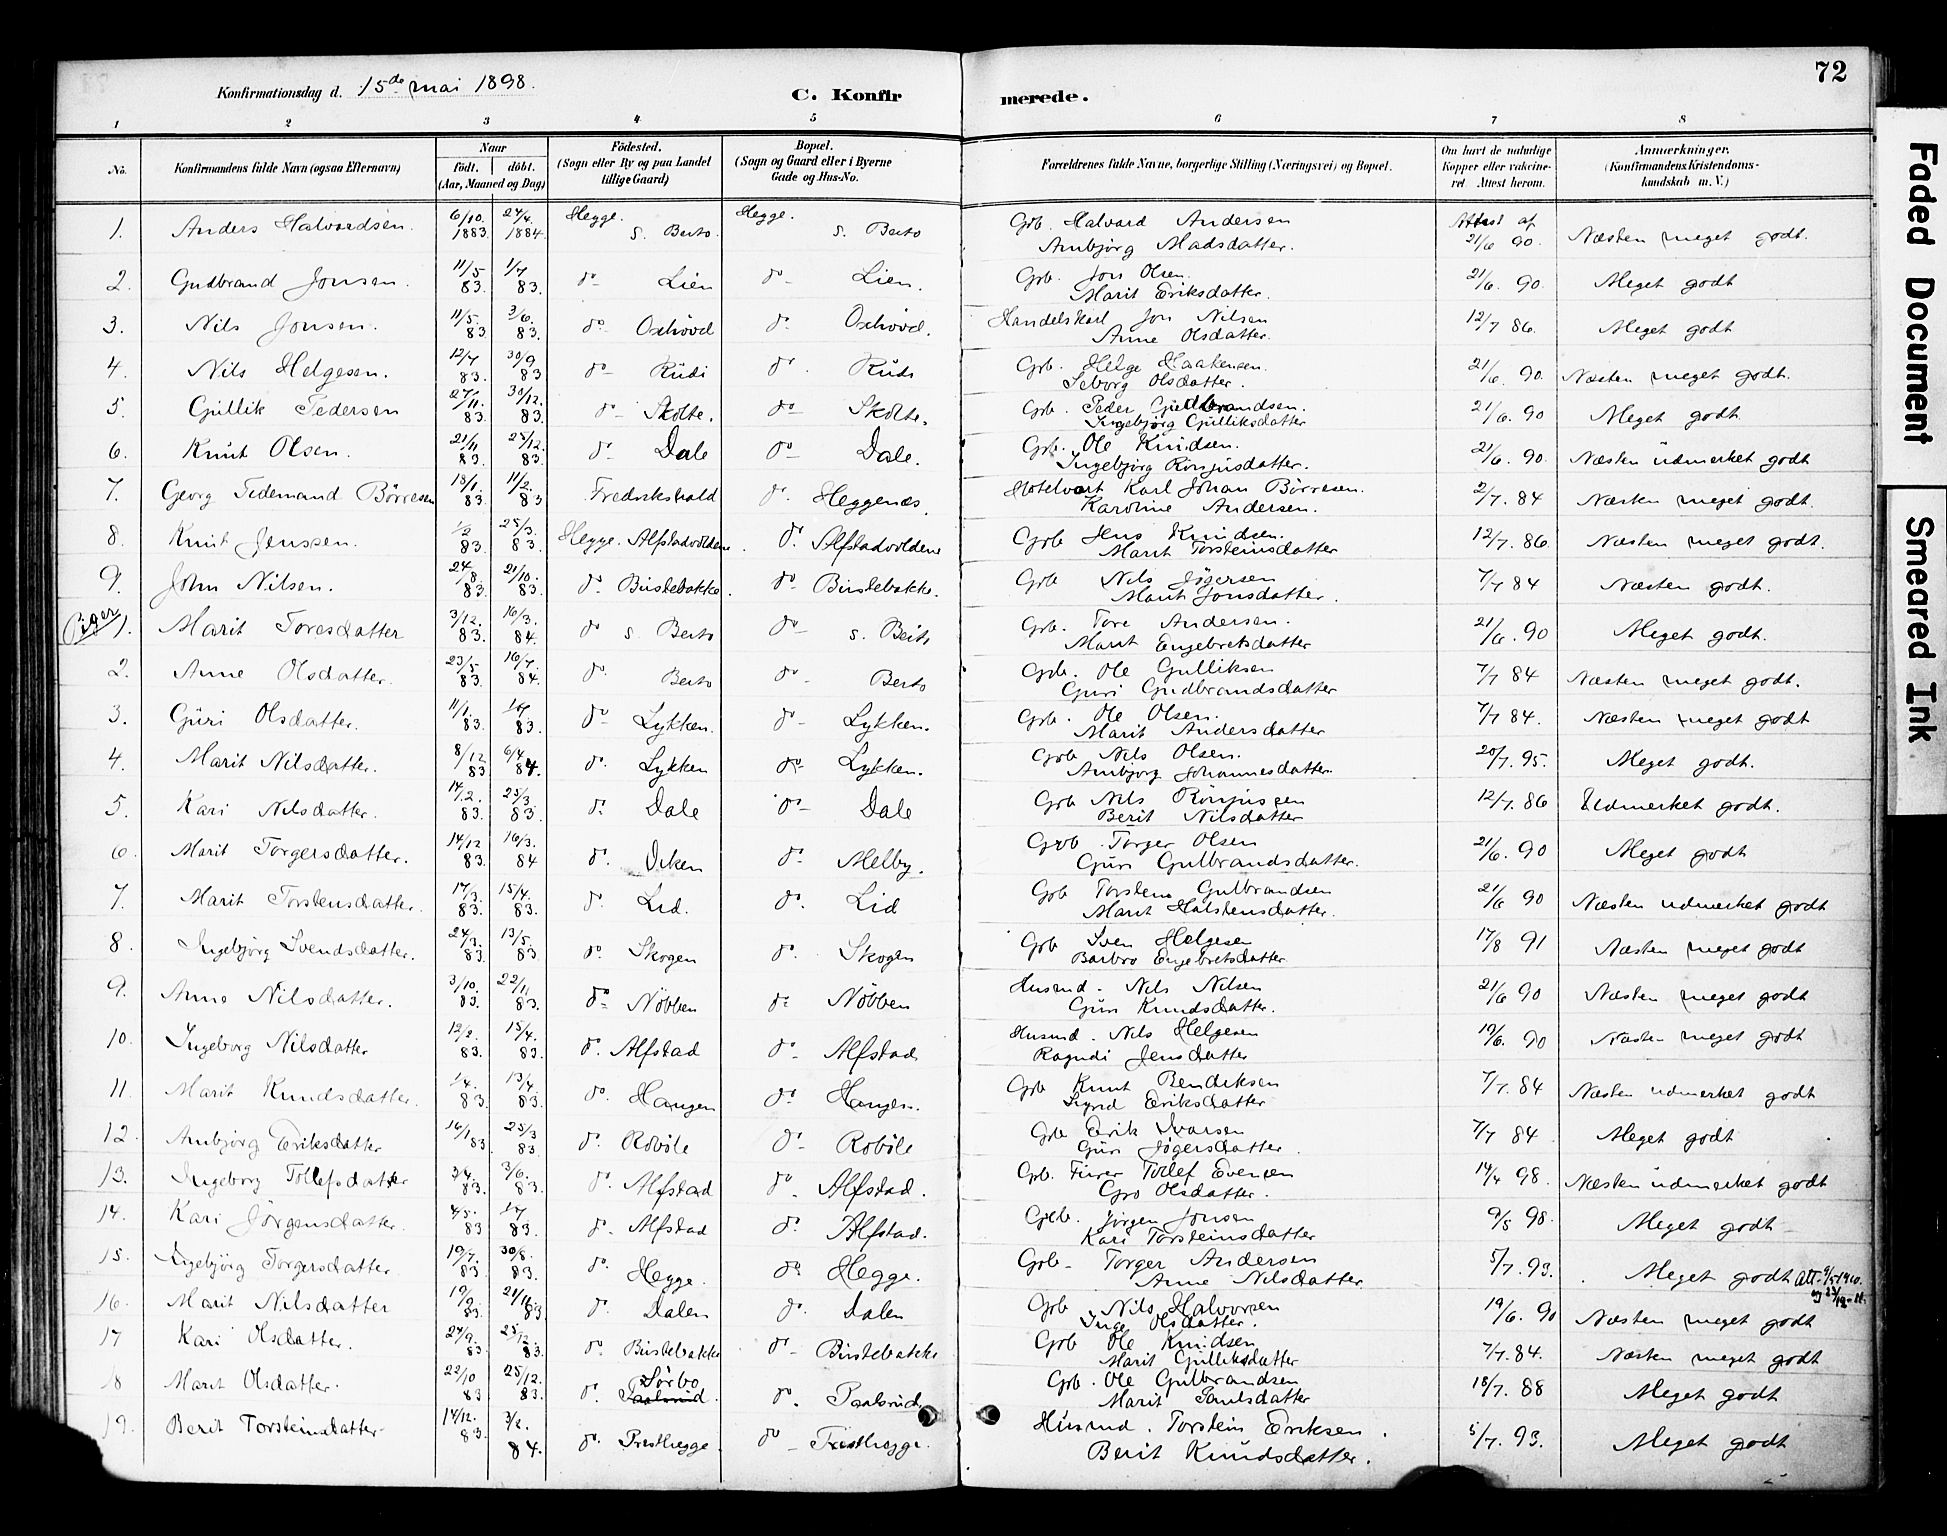 72
Konfirmationsdag d. 15de mai 1898.
C. Konfirmerede.
1 2 3 4 5 6 7 8
No. Konfirmandens fulde Navn (ogsaa Efternavn) Naar født. døbt. (Aar, Maaned og Dag) Fødested. (Sogn eller By og paa Landet tillige Gaard) Bopæl. (Sogn og Gaard eller i Byerne Gade og Hus-No. Forældrenes fulde Navne, borgerlige Stilling (Næringsvei) og Bopæl. Om havt de naturlige Kopper eller vakcineret. Attest herom. Anmærkninger. (Konfirmandens Kristendomskundskab m. V.)
1. Anders Halvordsen. 6/10. 1883. 24/4. 1884. Hegge. s. Beito. Hegge. s. Beito Grb. Halvard Andersen Ambjörg Madsdatter. Attest af 21/6 90. Næsten meget godt.
2. Gudbrand Jonsen. 11/5 83. 1/7 83. do Lien do Lien. Grb. Jon Olsen. Marit Eriksdatter. 21/6. 90. Meget godt
3. Nils Jonsen. 11/5. 83. 3/6. 83. do Oxhövd do Oxhövd. Handelskarl Jon Nilsen Anne Olsdatter. 12/7 86. Meget godt
4. Nils Helgesen. 12/7 83. 30/9 83 do Rudi do Rudi Grb. Helge Haakensen. Seborg Olsdatter. 21/6. 90. Næsten meget godt.
5. Gullik Pedersen 27/11. 83. 30/12. 83. do Skolte. do Skolte. Grb. Peder Gudbrandsen. Ingebjörg Gulliksdatter 21/6. 90 Meget godt
6. Knut Olsen. 21/11 83. 25/12. 83. do Dale do Dale. Grb. Ole Knudsen. Ingebjörg Rönjusdatter. 21/6. 90. Næsten udmerket godt
7. Georg Tedemand Börresen 13/1. 83. 11/2. 83 Fredrikshald do. Heggenæs. Hotelvært Karl Johan Börresen. Karoline Andersen. 2/7. 84 Næsten meget godt.
8. Knut Jenssen. 1/2 83. 25/3. 83. Hegge. Alfstadvoldene. do. Alfstadvoldene Grb Jens Knudsen. Marit Torsteinsdatter 12/7. 86 Næsten meget godt.
9. John Nilsen. 24/8. 83. 21/10. 83. do. Büstebakke. do Büstebakke. Grb Nils Jögersen Marit Jonsdatter. 7/7 84 Næsten godt.
Piger 1. Marit Toresdatter 3/12. 83. 16/3. 84. do s. Beito do s. Beito Grb. Tore Andersen. Marit Engebretsdatter 21/6. 90 Meget godt.
2. Anne Olsdatter. 23/5 83. 16/7. 84. do. Beito do Beito Grb. Ole Gulliksen Guri Gudbrandsdatter 7/7 84 Næsten meget godt.
3. Guri Olsdatter. 11/1. 83. 1/7. 83. do Lykken. do Lykken. Grb. Ole Olsen. Marit Andersdatter 7/7 84. Næsten meget godt
4. Marit Nilsdatter. 8/12 83 6/4 84. do. Lykken do Lykken. Grb Nils Olsen. Ambjorg Johannesdatter. 20/7. 95. Meget godt.
5. Kari Nilsdatter. 14/2. 83. 25/3. 83. do Dale do Dale Grb Nils Rönjusen Berit Nilsdatter 12/7. 86 Udmerket godt.
6. Marit Torgersdatter. 14/12 83. 16/3. 84 do. Viken do. Melby. Grb. Torger Olsen Guri Gulbrandsdatter. 21/6. 90 Meget godt
7. Marit Torstensdatter. 17/3. 83. 15/4. 83. do. Lid. do. Lid Grb Torstens Gulbrandsen Marit Halstensdatter. 21/6 90 Næsten udmerket godt
8. Ingebjörg Svendsdatter. 24/3. 83. 13/5. 83. do. Skogen do. Skogen Grb Sven Helgesen Barbro Engebretsdatter 17/8 91 Næsten meget godt
9. Anne Nilsdatter. 3/10. 83. 22/11. 83. do Nöbben do Nöbben Husmd. Nils Nilsen Guri Knudsdatter. 21/6 90 Næsten meget godt
10. Ingeborg Nilsdatter 12/2. 83. 15/4. 83. do. Alfstad do Alfstad Husmd. Nils Helgesen Ragndi Jensdatter 19/6. 90 Næsten meget godt
11. Marit Knudsdatter. 1/4. 83. 13/4. 83. do. Haugen do Haugen. Grb Knut Bendiksen Sigrid Eriksdatter 7/7. 84 Næsten udmerket godt
12. Ambjörg Eriksdatter 16/1 83. 25/3 83. do. Roböle do Roböle Grb Erik Ivarsen Guri Jögersdatter. 7/7 84 Meget godt
13. Ingeborg Tollefsdatter 83. 3/6. 83. do. Alfstad do Alfstad. Grb. Furer Tollef Evensen Gro Olsdatter. 14/4 98. Næsten udmerket godt
14. Kari Jörgensdatter. 4/5. 83 1/7 83. do. Alfstad do Alfstad. Grb. Jörgen Jonsen Kari Torsteinsdatter 9/5 98. Meget godt
15. Ingebjörg Torgersdatter 19/7. 83 30/8. 83. do. Hegge. do Hegge. Grb. Torger Andersen Anne Nilsdatter. 5/7. 93. Meget godt
16. Marit Nilsdatter 19/9. 83. 83. do. Dalen do. Dalen Grb Nils Halvorsen Inge Olsdatter. 19/6. 90 Næsten meget godt
17 Kari Olsdatter. 24/9. 83 25/12. 83. do. Büstebakke do Büstebakke Grb Ole Knudsen Marit Gulliksdatter 7/7. 84. Næsten meget godt
18 Marit Olsdatter. 22/10 83 25/12. 83. do. Sörbo Paalsrud. do. Paalsrud. Grb. Ole Gulbrandsen Marit Paulsdatter 18/7. 88 Meget godt
19. Berit Torsteinsdatter 14/12. 83. 3/2. 84. do. Presthegge. do Presthegge. Husmd. Torstein Eriksen. Berit Knudsdatter. 5/7. 93. Meget godt
Faded Document
Smeared Ink